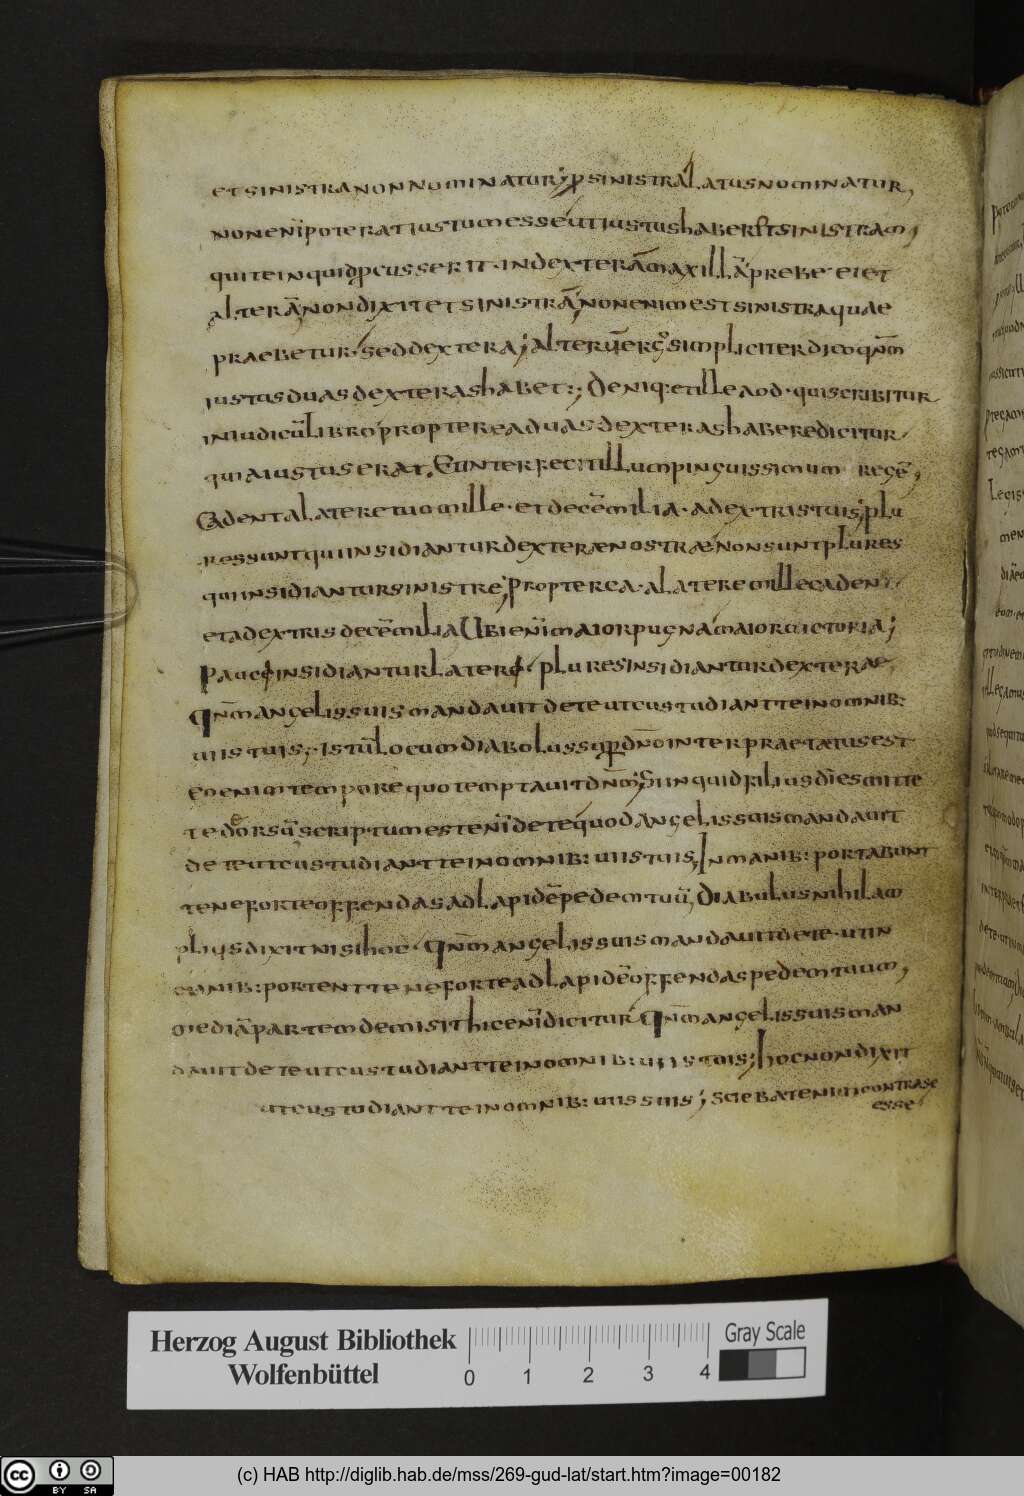 et sinistra non nominatur; p sinistra latus nominatur,
non eni poterat iustus tum esse ut iustus haberet sinistram;
qui te inquid pcusserit · in dexterā maxillā prebe ei et
alterā non dixit et sinistrā; non enim est sinistra quae
praebetur · sed dextera; alter ū ergo simpliciter dico qnm
iustus duas dexteras habet:; Deniq: et ille aod · qui scribitur
in iudicū libro propterea duas dexteras habere dicitur
quia iustus erat. Et interfecit illum pinguissimum regē;
Cadent a latere tuo mille · et decē milia · a dextris tuis; plu
res sunt qui insidiantur dexteræ nostræ non sunt plures
qui insidiantur sinistre; propterea · a latere mille cadent
et a dextris decē milia Ubi eni maior pugna maior uictoria;
Pauci insidiantur lateri · plures insidiantur dexterae
Qnm angelis suis mandauit de te ut custudiant te in omnib:
uiis tuis; · Istū locum diabolus sup dno interpraetatus est
eo enim tempore quo temptauit dnm; Si inquid filius di es mitte
te deorsū scriptum est eni de te quod angelis suis mandauit
de te ut custudiant te in omnib: uiis tuis, In manib: portabunt
te ne forte offendas ad lapidē pedem tuū, Diabulus nihil am
plius dixit nisi hoc · Qnm angelis suis mandauit de te · ut in
manib: portent te ne forte ad lapidē offendas pedem tuum,
mediā partem demisit hic eni dicitur Qnm angelis suis man
dauit de te ut custudiant te in omnib: uiis tuis; hoc non dixit
ut custudiant te in omnib: uiis suis; Sciebat eni contra se
esse
Herzog August Bibliothek
Wolfenbüttel
0 1 2 3 4
Gray Scale
cc BY SA
(c) HAB http://diglib.hab.de/mss/269-gud-lat/start.htm?image=00182